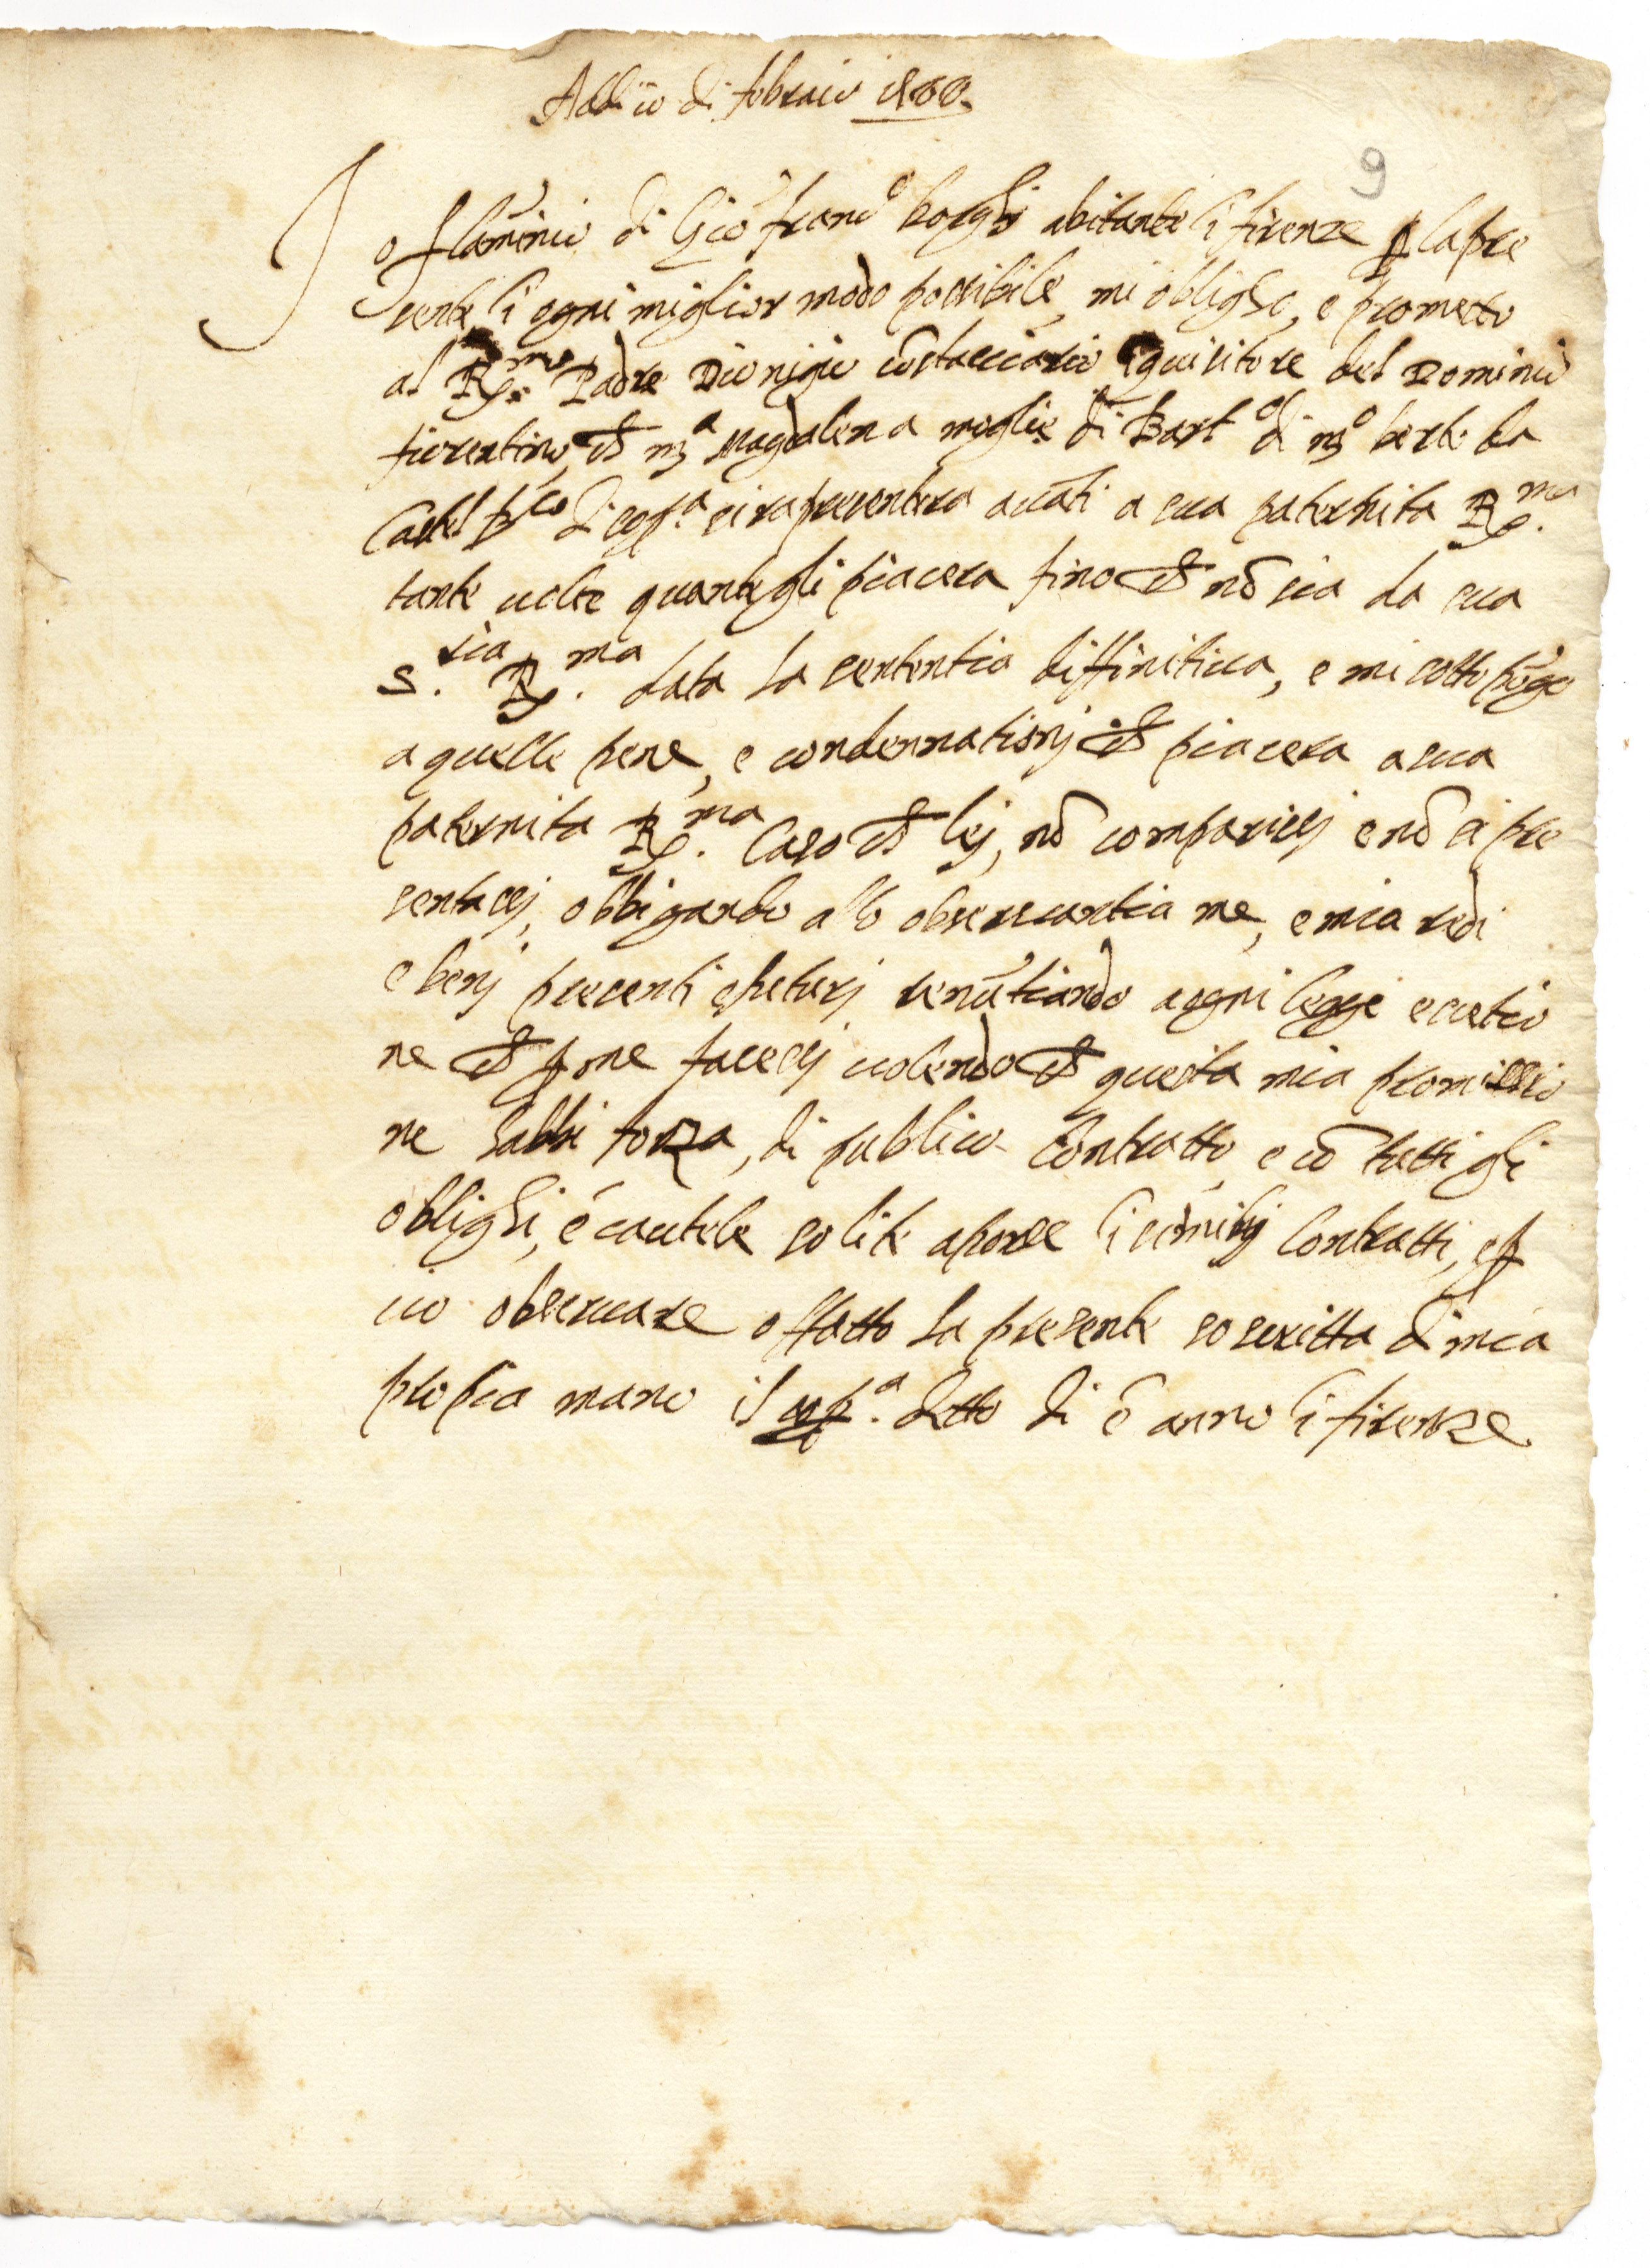 Addi io di febraio 1600.
9
Io flaminio di Gio francº borghi abitante ī firenze ꝑ la pre
sente ī ogni miglior modo possibile, mi obligho, e prometto
al R.mo Padre Dionigio costacciario īquisitore del Dominio
fiorentino, ch mª Magdalena moglie di Bartº di mº berto da
Castel di sopª si rapresentera avāti a sua paternita R.ma
tante volte quante gli piacera fino ch nō sia da sua
S.ria R.ma data la sententia diffinitiva, e mi sottopōgo
a quelle pene, e condennationj ch piacera a sua
paternita R.ma Caso ch lej, nō comparissj e nō si pre
sentassj, obbligando allo observantia me, e mia redi
e benj presenti e futurj renūtiando a ogni legge ecietio
ne ch ꝑ me facessj volendo ch questa mia promissio
ne habbi forza, di publico contratto, e cō tutti gli
oblighi, e cautele solite aporse ī similj Contratti, e ꝑ
cio observare o fatto la presente soscritta di mia
propia mano il supª. detto di e anno ī firenze